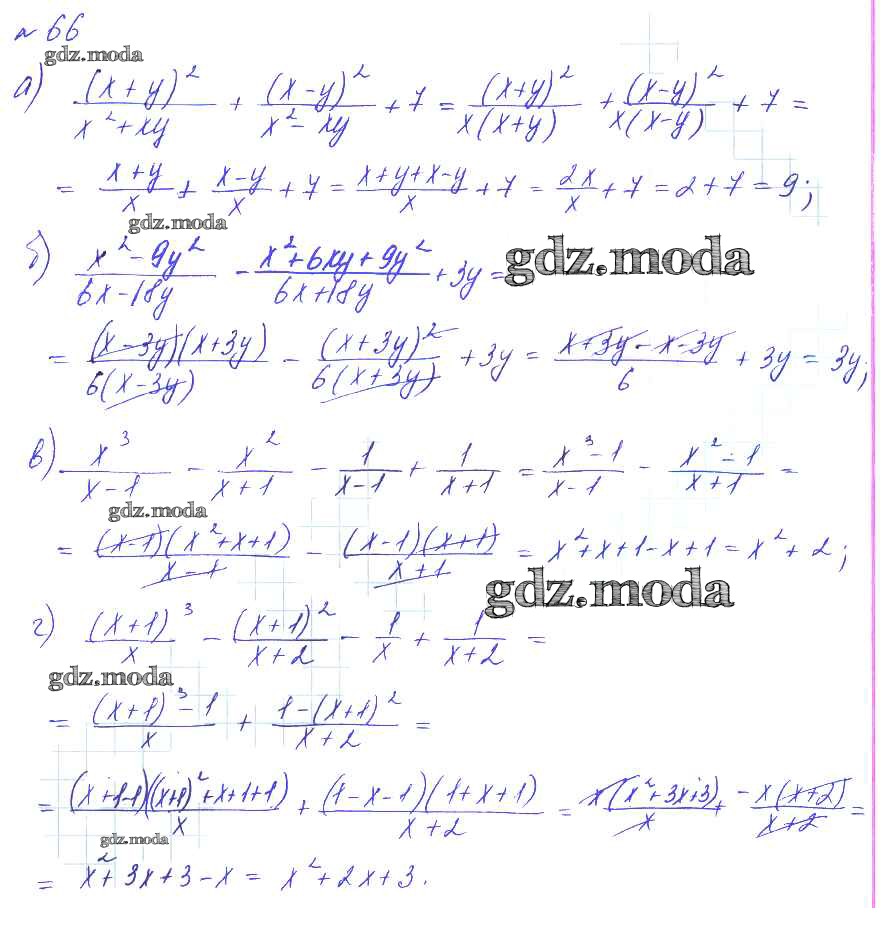 № 66
gdz.moda
а) (x+y)²/(x²+xy) + (x-y)²/(x²-xy) + 7 = (x+y)²/(x(x+y)) + (x-y)²/(x(x-y)) + 7 =
= (x+y)/x + (x-y)/x + 7 = (x+y+x-y)/x + 7 = 2x/x + 7 = 2+7 = 9;
gdz.moda
б) (x²-9y²)/(6x-18y) - (x²+6xy+9y²)/(6x+18y) + 3y =
gdz.moda
= (x-3y)(x+3y)/(6(x-3y)) - (x+3y)²/(6(x+3y)) + 3y = (x+3y-x-3y)/6 + 3y = 3y;
в) x³/(x-1) - x²/(x+1) - 1/(x-1) + 1/(x+1) = (x³-1)/(x-1) - (x²-1)/(x+1) =
gdz.moda
= (x-1)(x²+x+1)/(x-1) - (x-1)(x+1)/(x+1) = x²+x+1-x+1 = x²+2;
gdz.moda
г) (x+1)³/x - (x+1)²/(x+2) - 1/x + 1/(x+2) =
gdz.moda
= ((x+1)³-1)/x + (1-(x+1)²)/(x+2) =
= (x+1-1)((x+1)²+x+1+1)/x + (1-x-1)(1+x+1)/(x+2) = x(x²+3x+3)/x + -x(x+2)/(x+2) =
gdz.moda
= x²+3x+3-x = x²+2x+3.